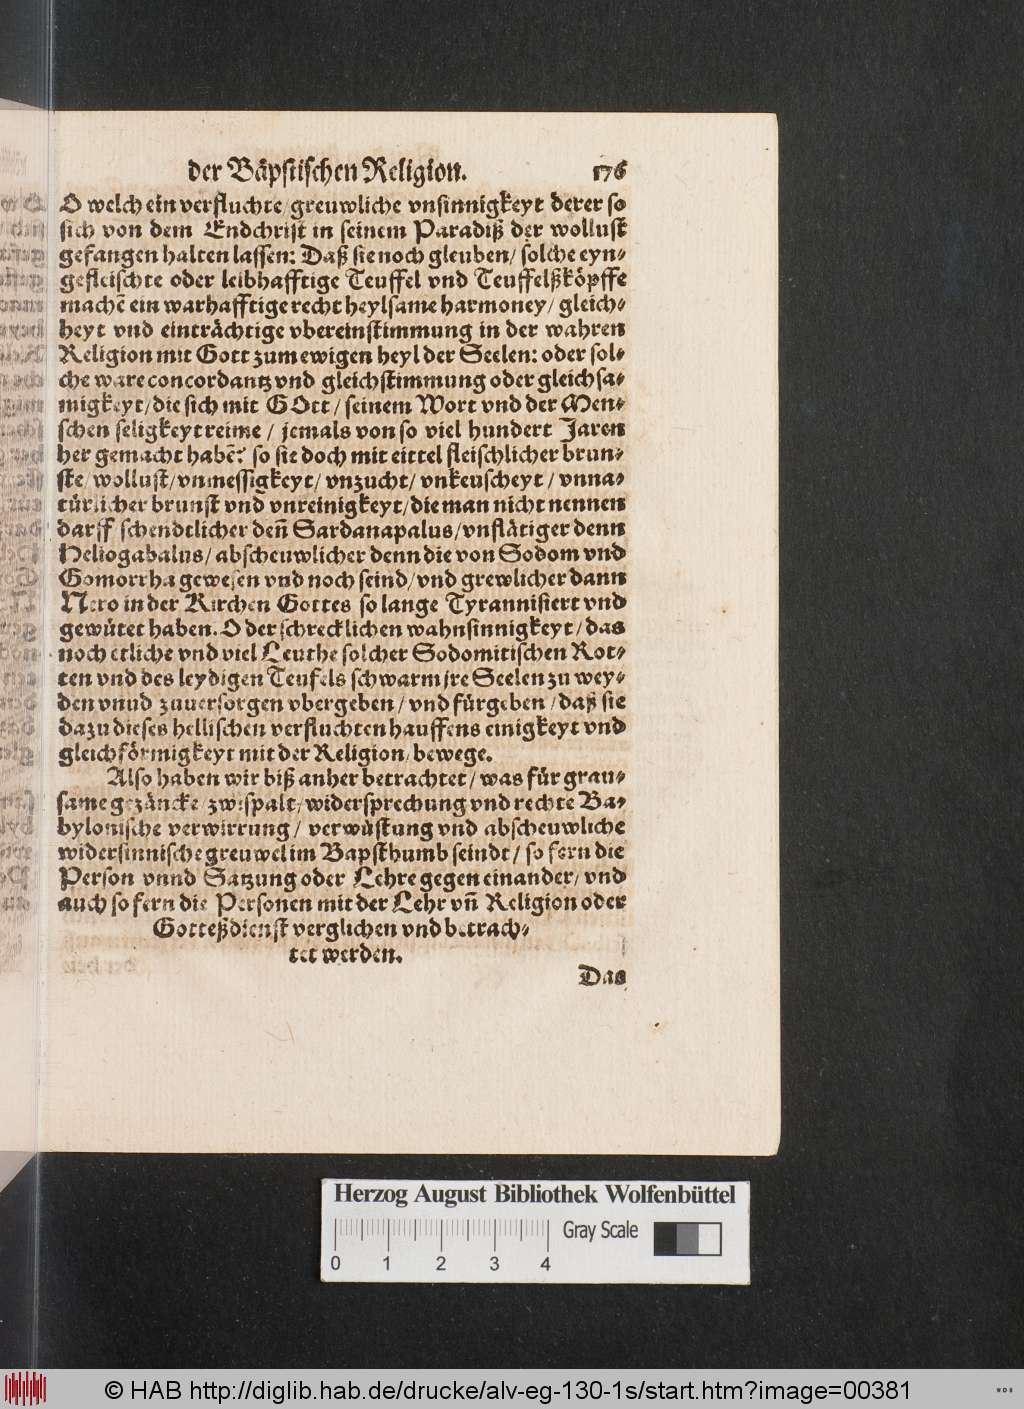 der Bäpstischen Religion. 176
O welch ein verfluchte/ greuwliche vnsinnigkeyt derer so
sich von dem Endchrist in seinem Paradiß der wollust
gefangen halten lassen: Daß sie noch gleuben/ solche eyn-
gefleischte oder leibhafftige Teuffel vnd Teuffelßköpffe
machẽ ein warhafftige recht heylsame harmoney/ gleich-
heyt vnd einträchtige vbereinstimmung in der wahren
Religion mit Gott zum ewigen heyl der Seelen: oder sol-
che ware concordantz vnd gleichstimmung oder gleichsa-
migkeyt/ die sich mit GOtt/ seinem Wort vnd der Men-
schen seligkeyt reime/ jemals von so viel hundert Jaren
her gemacht habẽ? so sie doch mit eittel fleischlicher brun-
ste/ wollust/ vnmessigkeyt/ vnzucht/ vnkeuscheyt/ vnna-
türlicher brunst vnd vnreinigkeyt/ die man nicht nennen
darff schendtlicher deñ Sardanapalus/ vnflätiger denn
Heliogabalus/ abscheuwlicher denn die von Sodom vnd
Gomorrha gewesen vnd noch seind/ vnd grewlicher dann
Nero in der Kirchen Gottes so lange Tyrannisiert vnd
gewütet haben. O der schrecklichen wahnsinnigkeyt/ das
noch etliche vnd viel Leuthe solcher Sodomitischen Rot-
ten vnd des leydigen Teufels schwarm jre Seelen zu wey-
den vnnd zuuersorgen vbergeben/ vnd fürgeben/ daß sie
dazu dieses hellischen verfluchten hauffens einigkeyt vnd
gleichförmigkeyt mit der Religion/ bewege.
Also haben wir biß anher betrachtet/ was für grau-
same gezäncke/ zwispalt/ widersprechung vnd rechte Ba-
bylonische verwirrung/ verwüstung vnd abscheuwliche
widersinnische greuwel im Bapsthumb seindt/ so fern die
Person vnnd Satzung oder Lehre gegen einander/ vnd
auch so fern die Personen mit der Lehr vñ Religion oder
Gotteßdienst verglichen vnd betrach-
tet werden.
Das
Herzog August Bibliothek Wolfenbüttel
Gray Scale
0 1 2 3 4
© HAB http://diglib.hab.de/drucke/alv-eg-130-1s/start.htm?image=00381